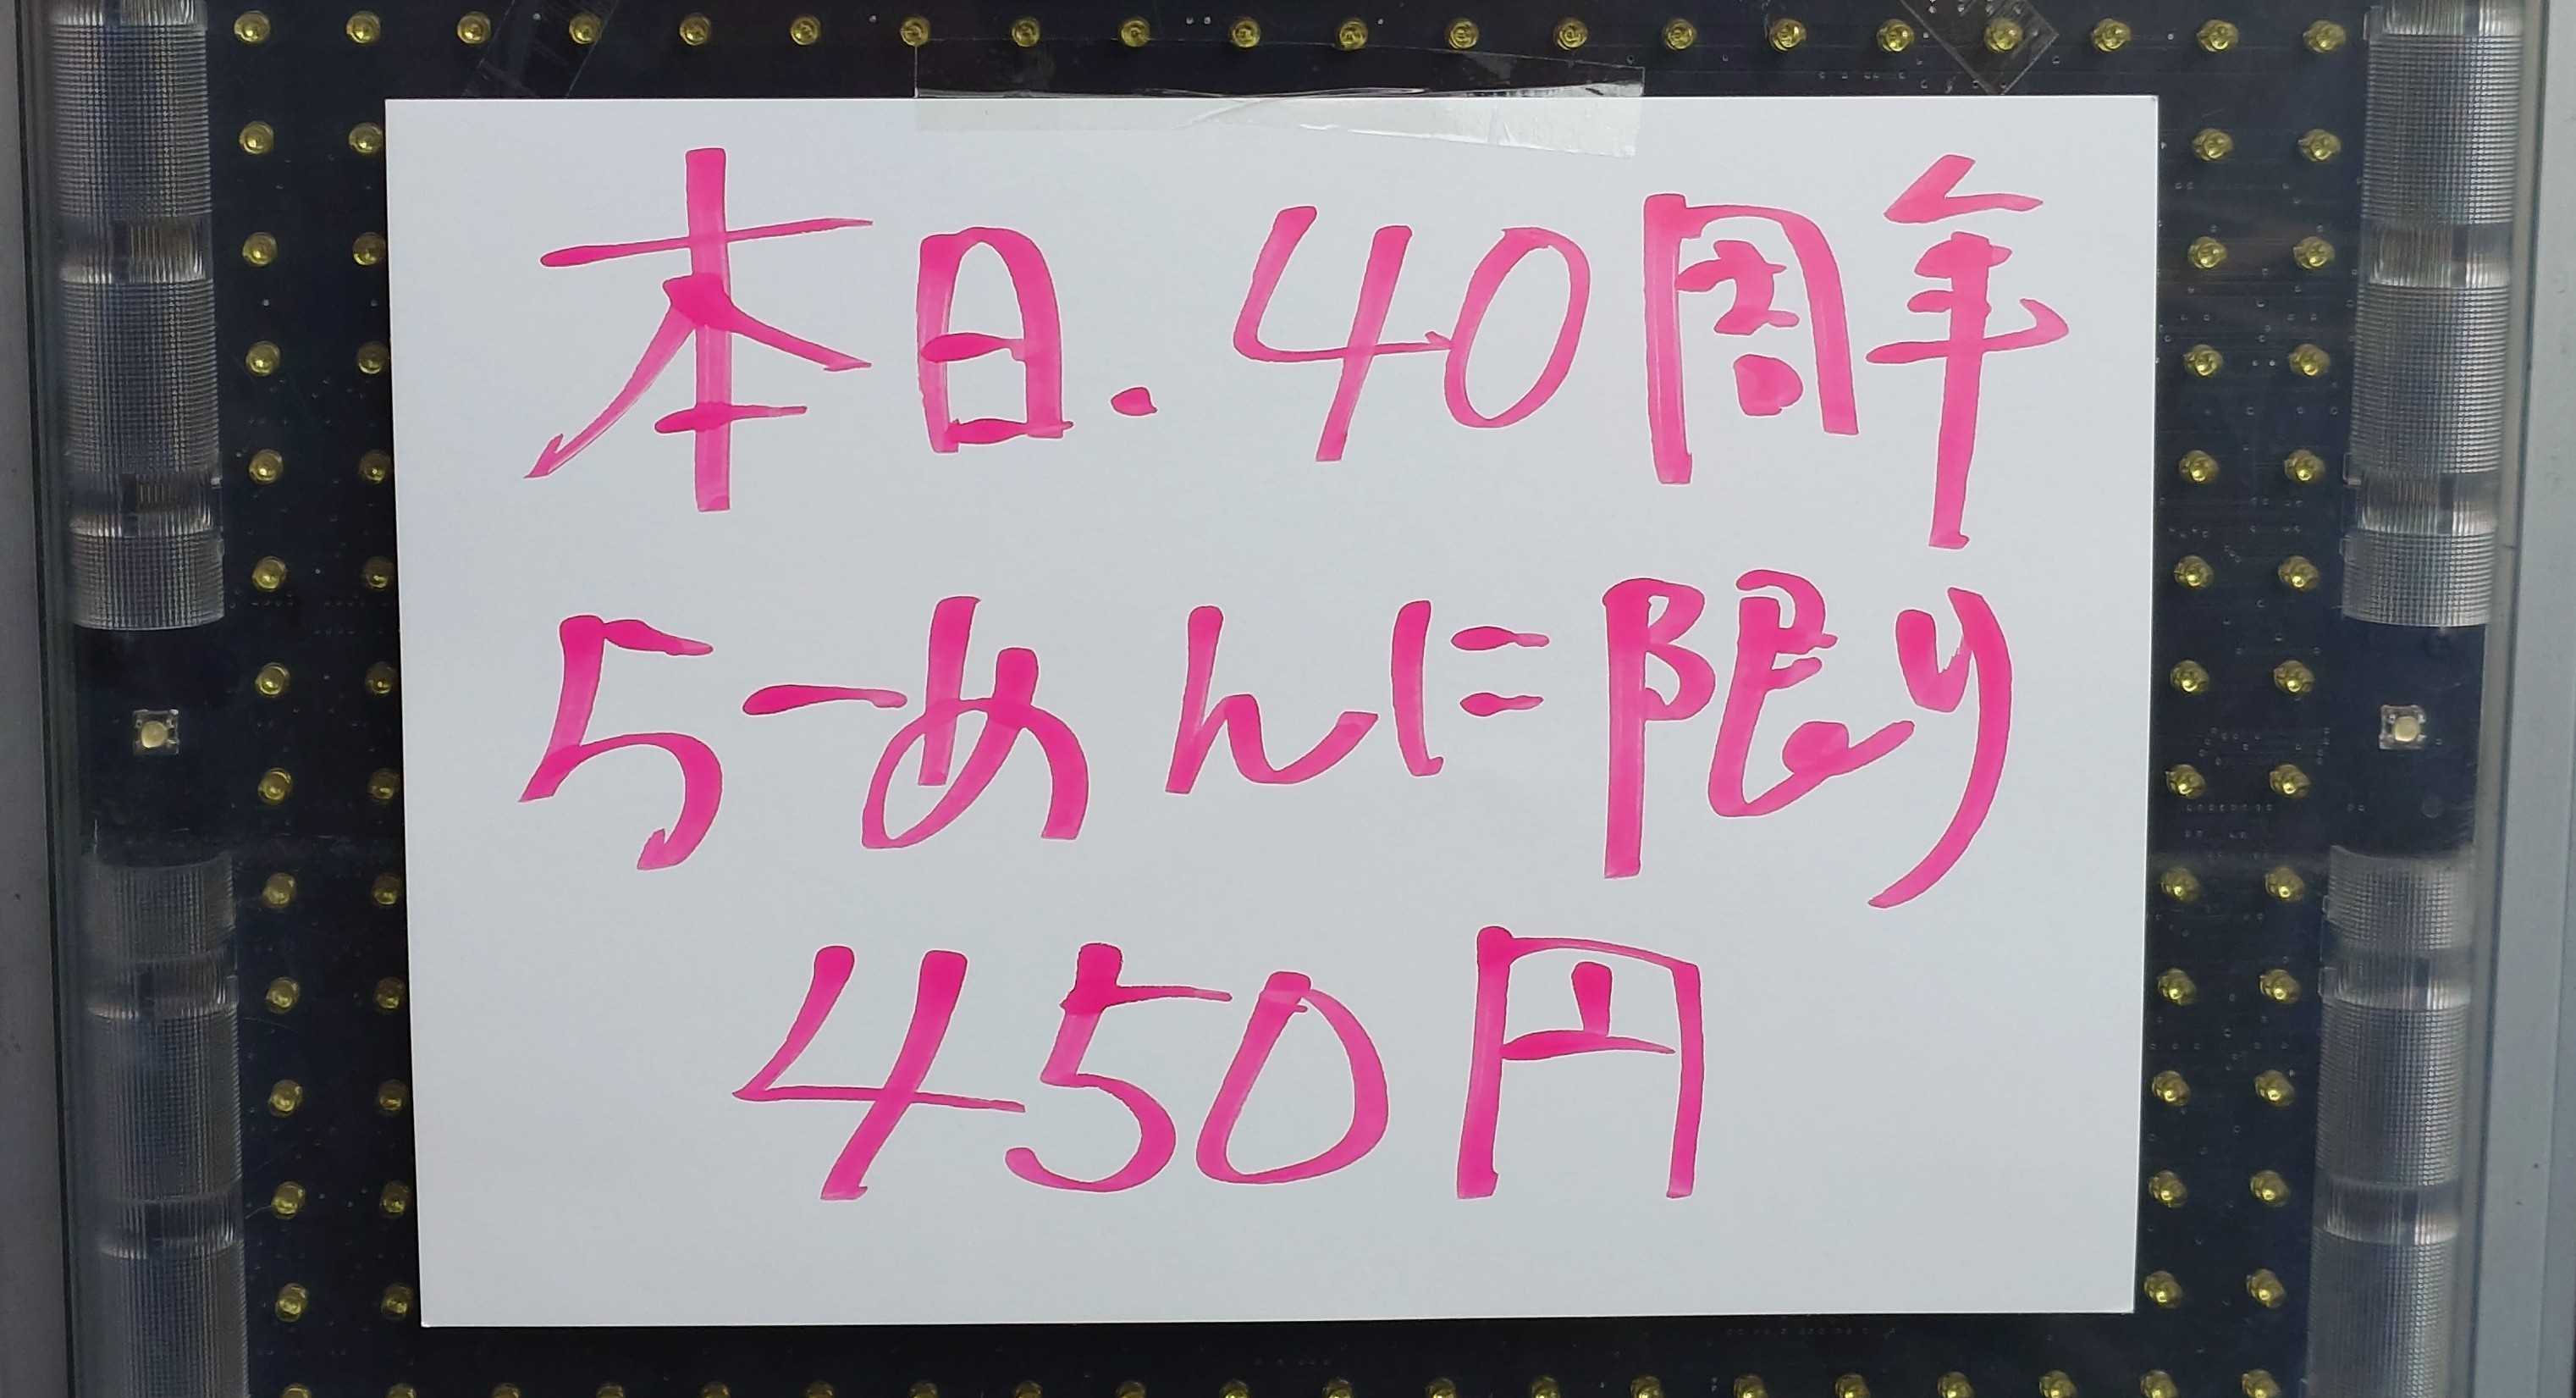 本日.40周年
らーめんに限り
450円